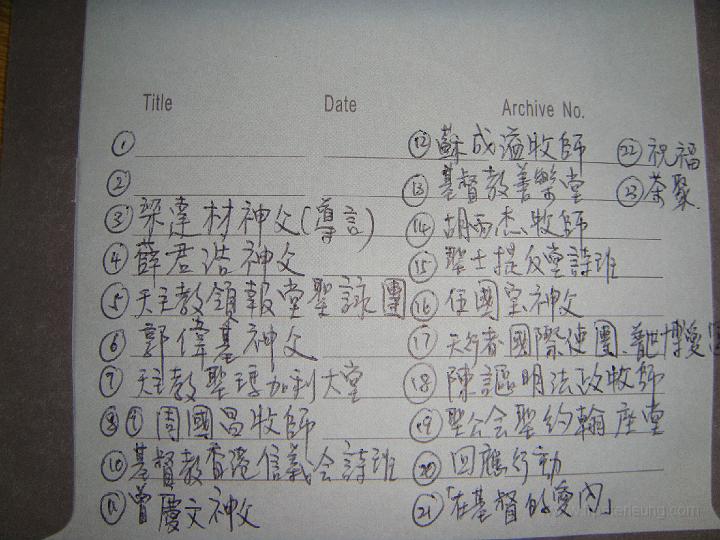 Title Date Archive No.
①
②
③ 梁達材神父(導言)
④ 薛君浩神父
⑤ 天主教領報堂聖詠團
⑥ 郭偉基神父
⑦ 天主教聖瑪加利大堂
⑧ ⑨ 周國昌牧師
⑩ 基督教香港信義会詩班
⑪ 曾慶文神父
⑫ 蘇成溢牧師
⑬ 基督教善樂堂
⑭ 胡雨杰牧師
⑮ 聖士提反堂詩班
⑯ 伍國宝神父
⑰ 天行者國際使團、普世博愛
⑱ 陳謳明法政牧師
⑲ 聖公会聖約翰座堂
⑳ 回應行動
㉑「在基督的愛内」
㉒ 祝福
㉓ 茶聚